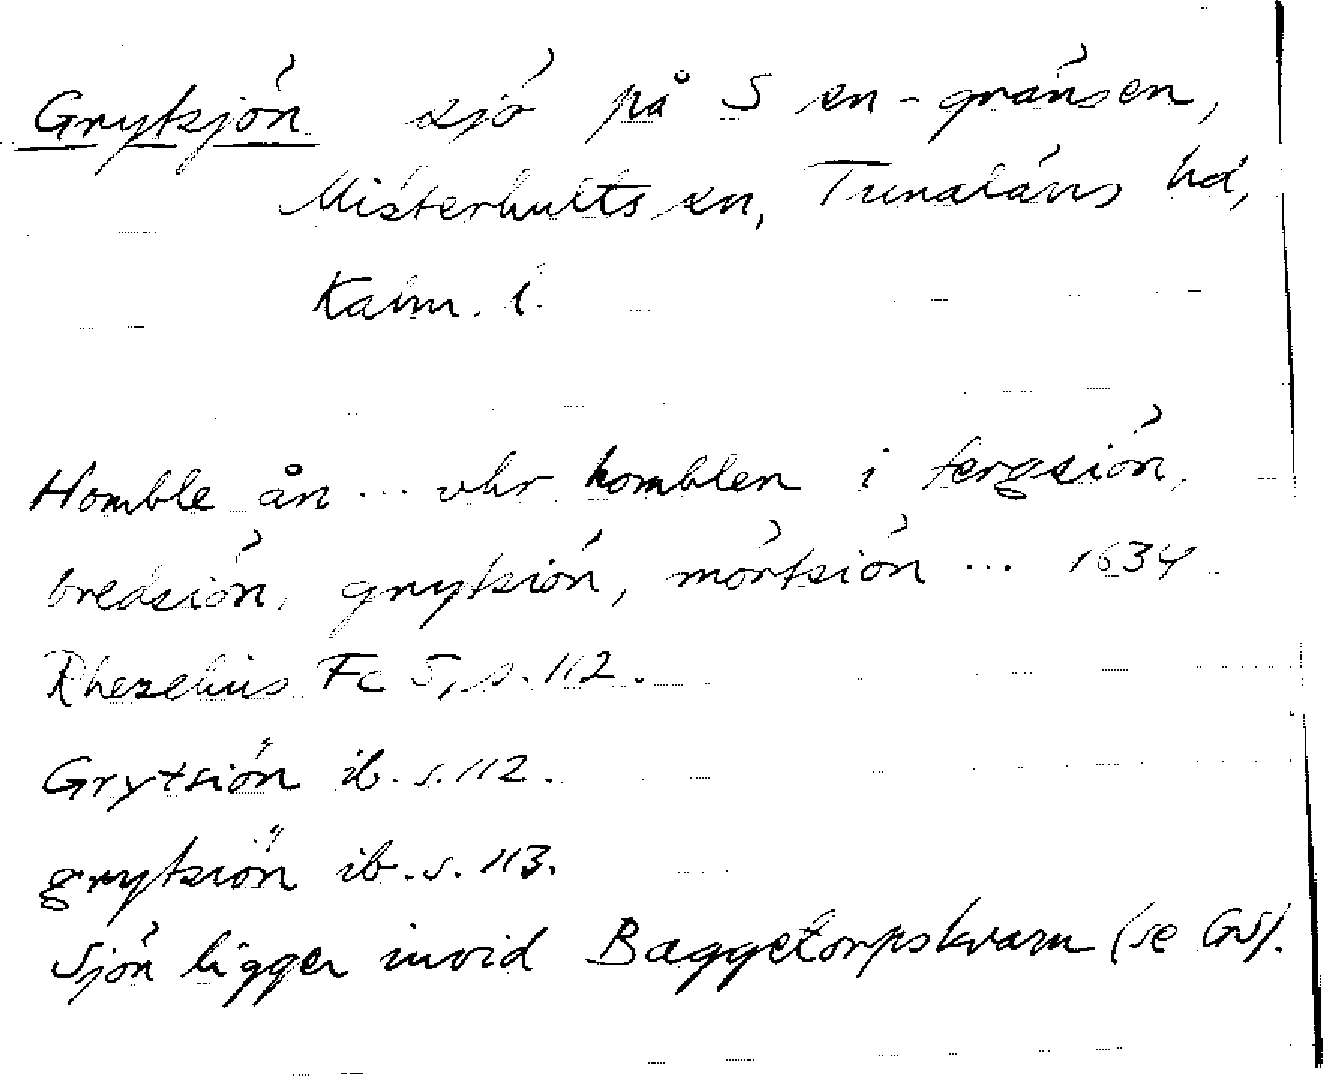 Grytsjön sjö på S sn-gränsen,
Misterhults sn, Tunaläns hd,
Kalm. l.
Homble ån ... vhr homblen i fergsión,
bredsión, grytsión, mörtsión ... 1634.
Rhezelius Fc 5, s. 112.
Grytsiön ib. s. 112.
grytsiön ib. s. 113.
Sjön ligger invid Baggetorpskvarn (se GS).